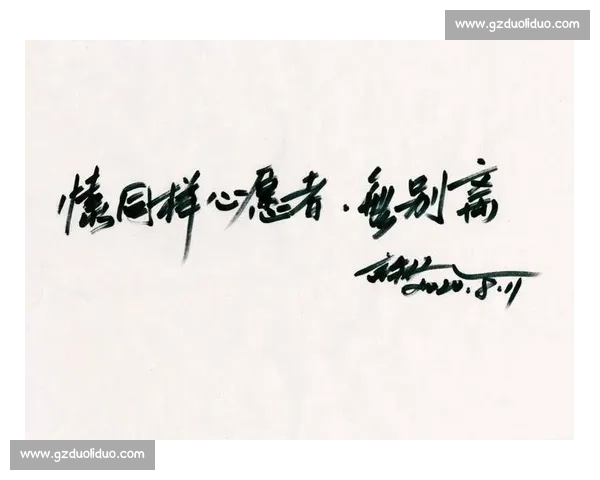 www.gzduoliduo.com
懷同样心愿者.無别离
2020.8.11
www.gzduoliduo.com